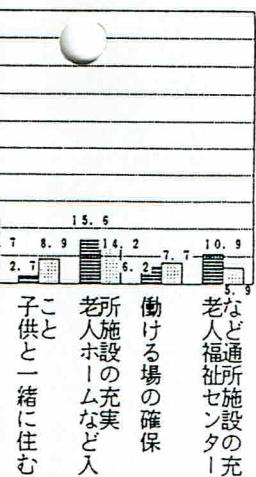 15. 6
. 7
8. 9
14. 2
7. 7
10. 9
2. 7
6. 2
5. 9
子供と一緒に住む
こと
老人ホームなど入
所施設の充実
働ける場の確保
老人福祉センター
など通所施設の充